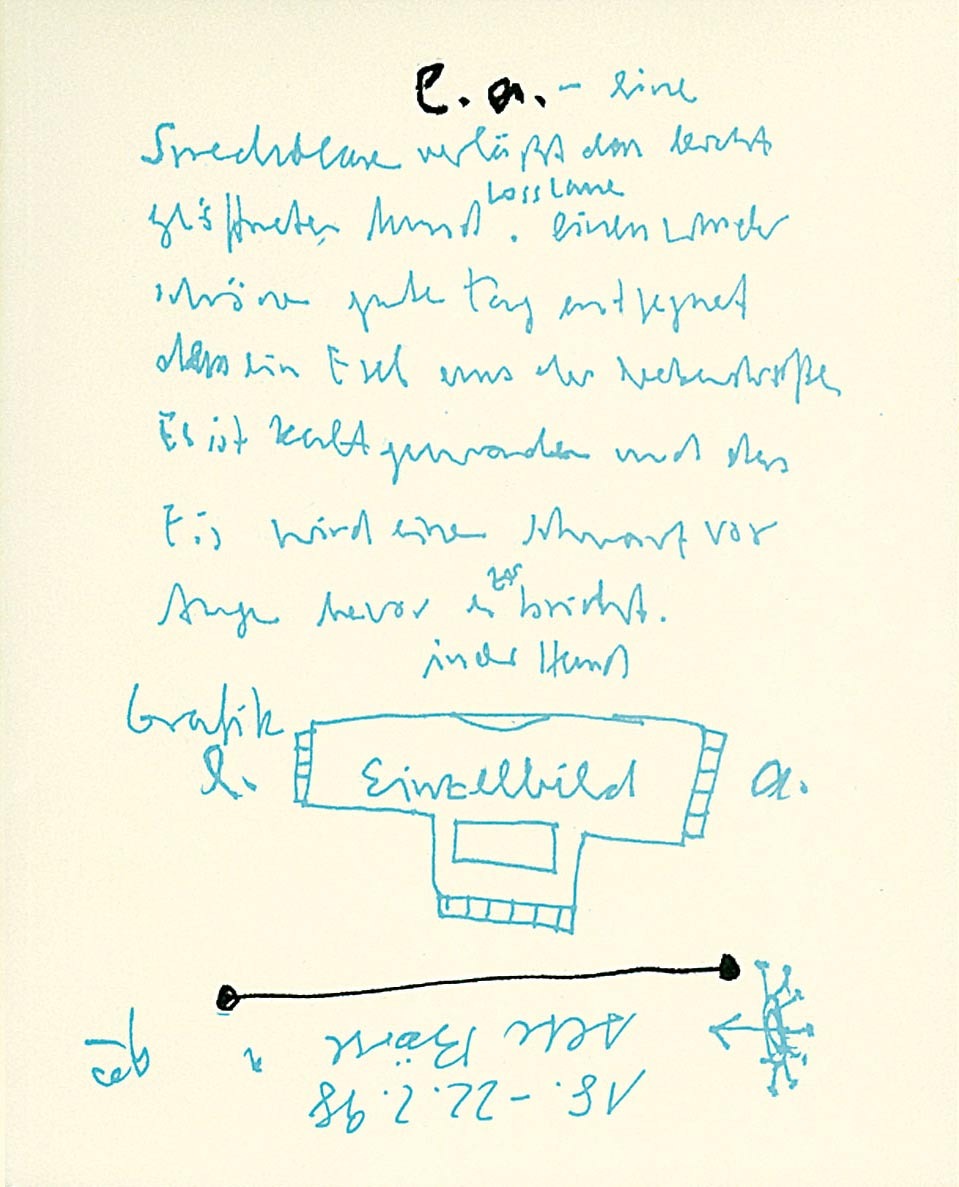 e.a. - eine
Sprechblase verläßt den leicht
geöffneten Mund. Losslane einen wunder
schönen guten Tag entgegnet
dem ein Esel aus der Nebenstraße.
Es ist kalt geworden und das
Eis wird einem schwarz vor
Augen bevor es zerbricht.
in der Hand
Grafik
e. Einzelbild a.
alte Börse
18. - 22.2.98